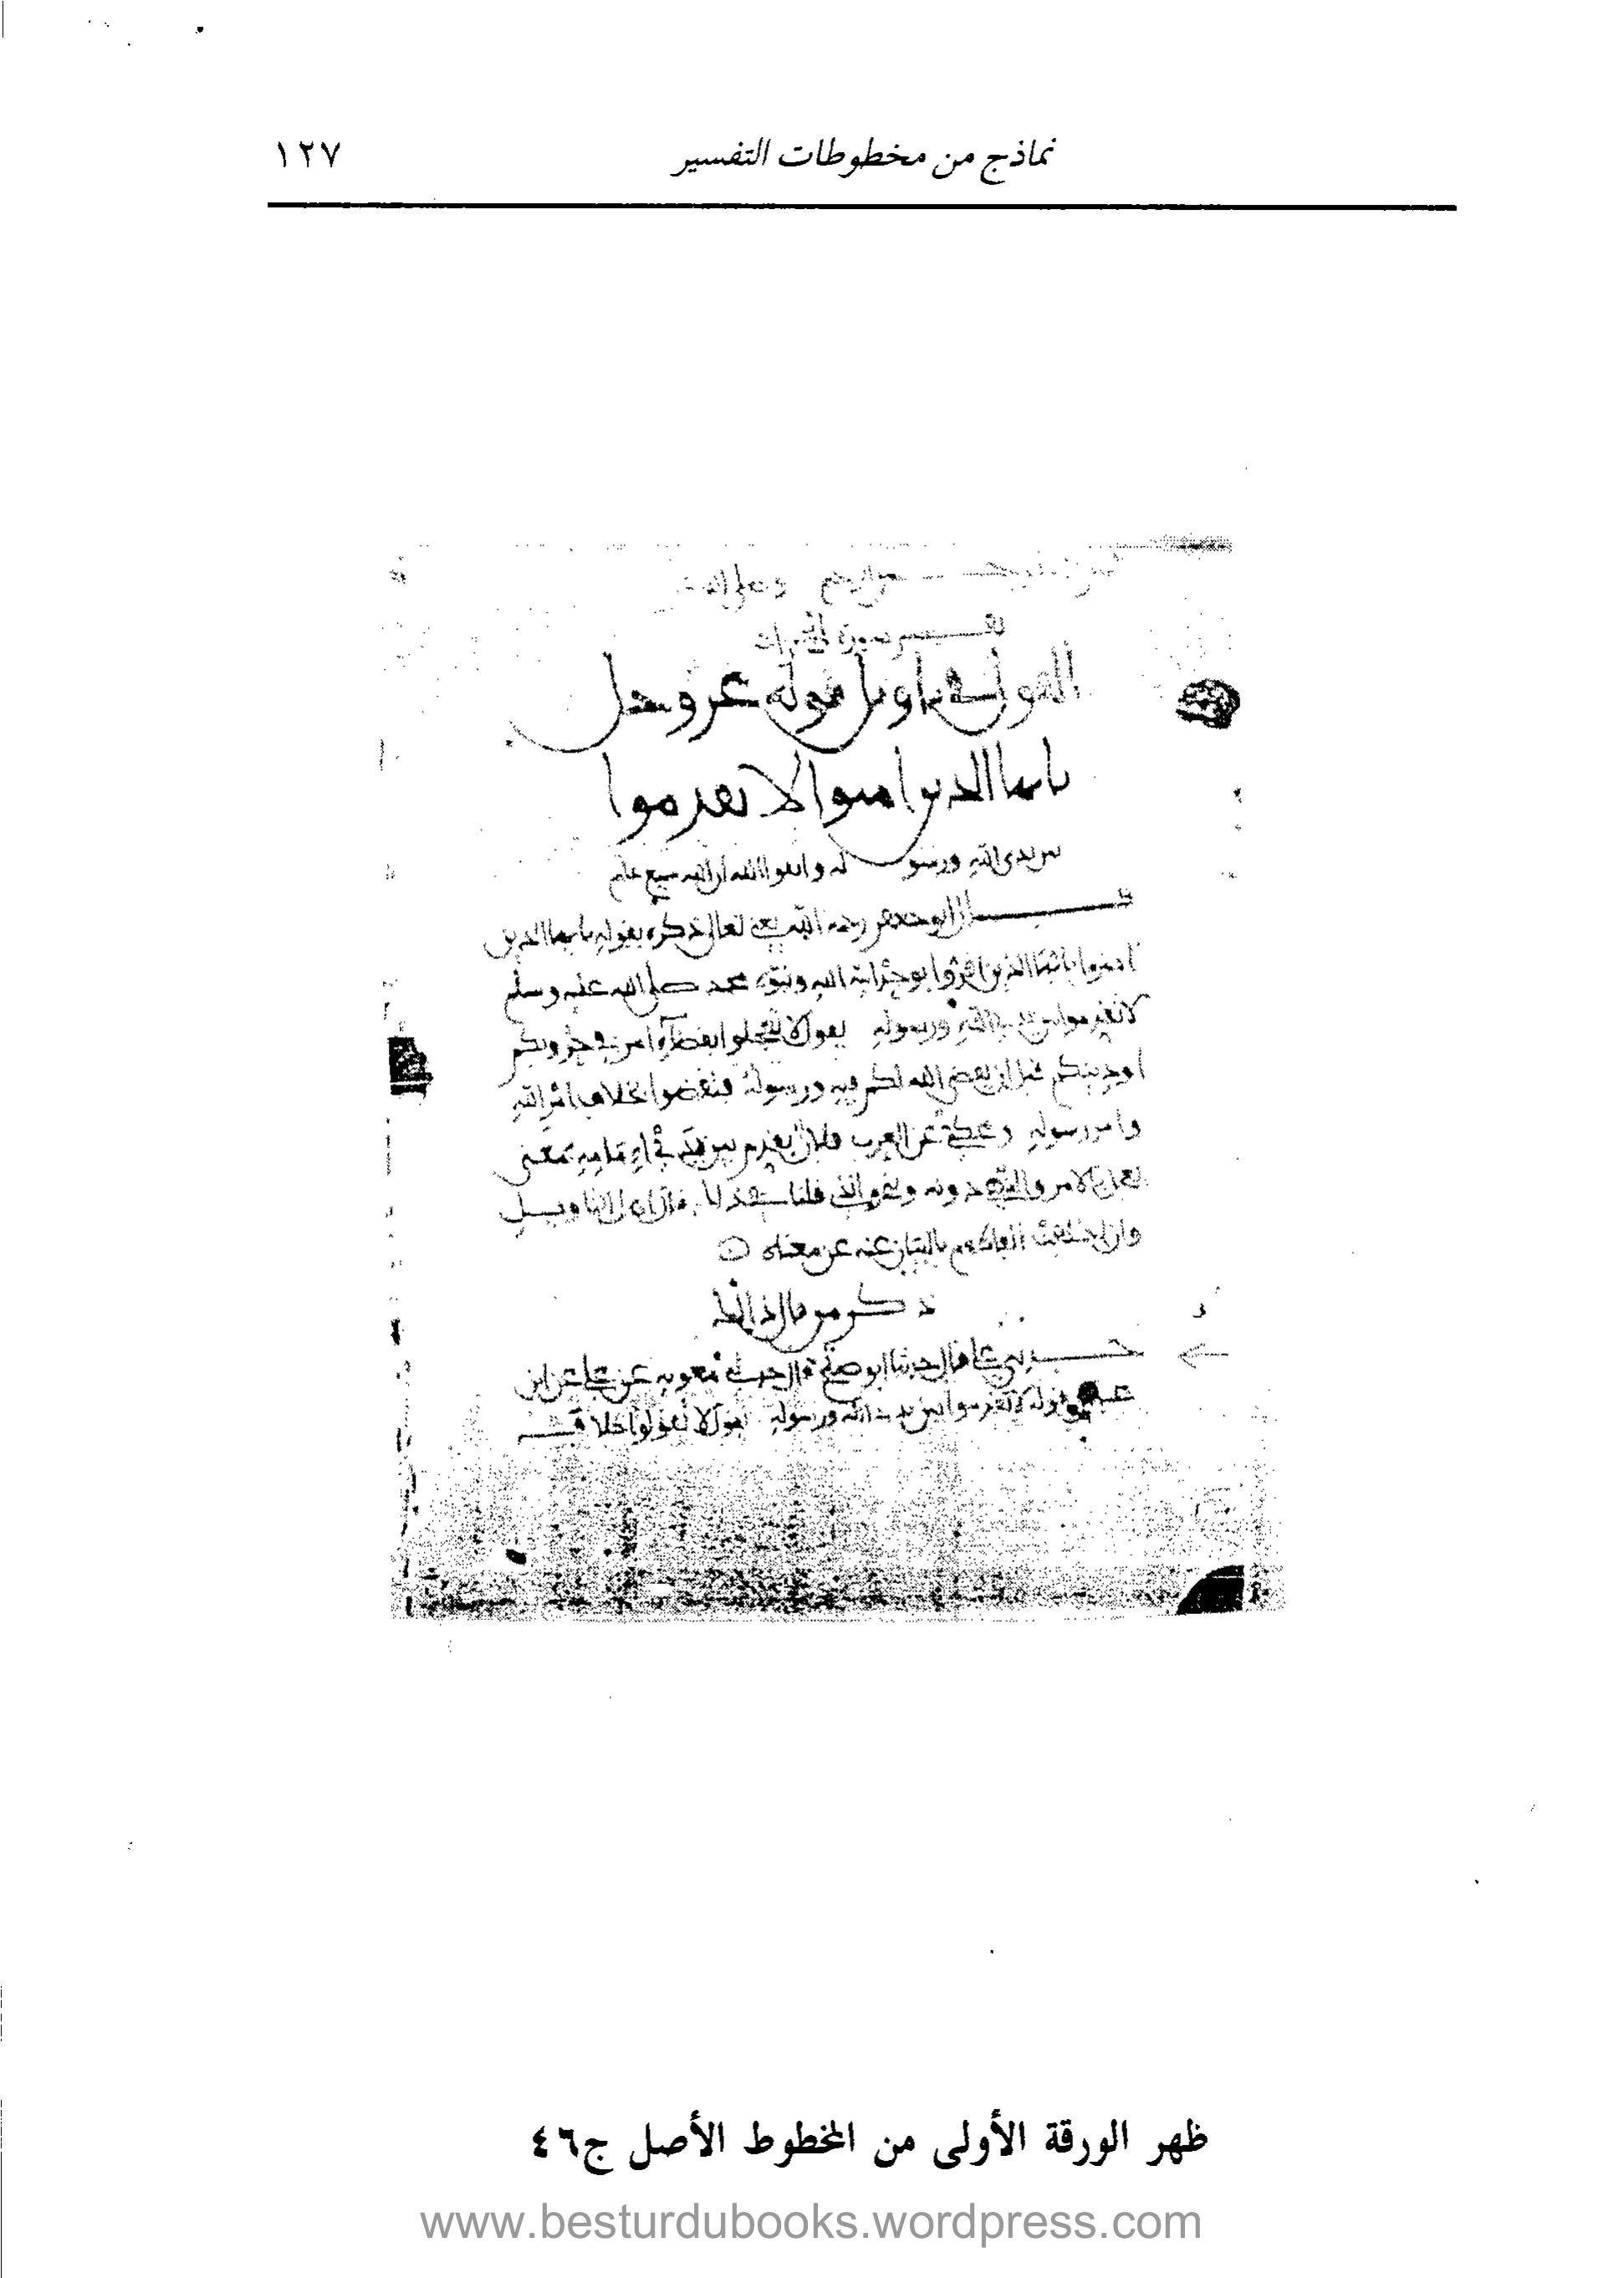 نماذج من مخطوطات التفسير ١٢٧
تفسير سورة الحجرات
القول في تاويل قوله عز وجل
يايها الذين امنوا لا تقدموا
بين يدى الله ورسوله واتقوا الله ان الله سميع عليم
قال ابو جعفر رحمه الله يعني تعالى ذكره بقوله يايها الذين
امنوا يا ايها الذين اقروا بوحدانية الله ونبوة محمد صلى الله عليه وسلم
لا تقدموا بين يدي الله ورسوله يقول لا تعجلوا بقضاء امر في حروبكم
او دينكم قبل ان يقضي الله لكم فيه ورسوله فتقضوا بخلاف امر الله
وامر رسوله محكي عن العرب فلان يقدم بين يدي امامه بمعنى
يعجل بالامر والنهي دونه وبنحو الذي قلنا في ذلك قال اهل التاويل
وان اختلفت الفاظهم بالبيان عنه عن معناه
ذكر من قال ذلك
حدثني علي قال حدثنا ابو صلح قال حدثني معوية عن علي عن ابن
عباس قوله لا تقدموا بين يدي الله ورسوله يقول لا تقولوا خلاف
ظهر الورقة الأولى من المخطوط الأصل ج٤٦
www.besturdubooks.wordpress.com